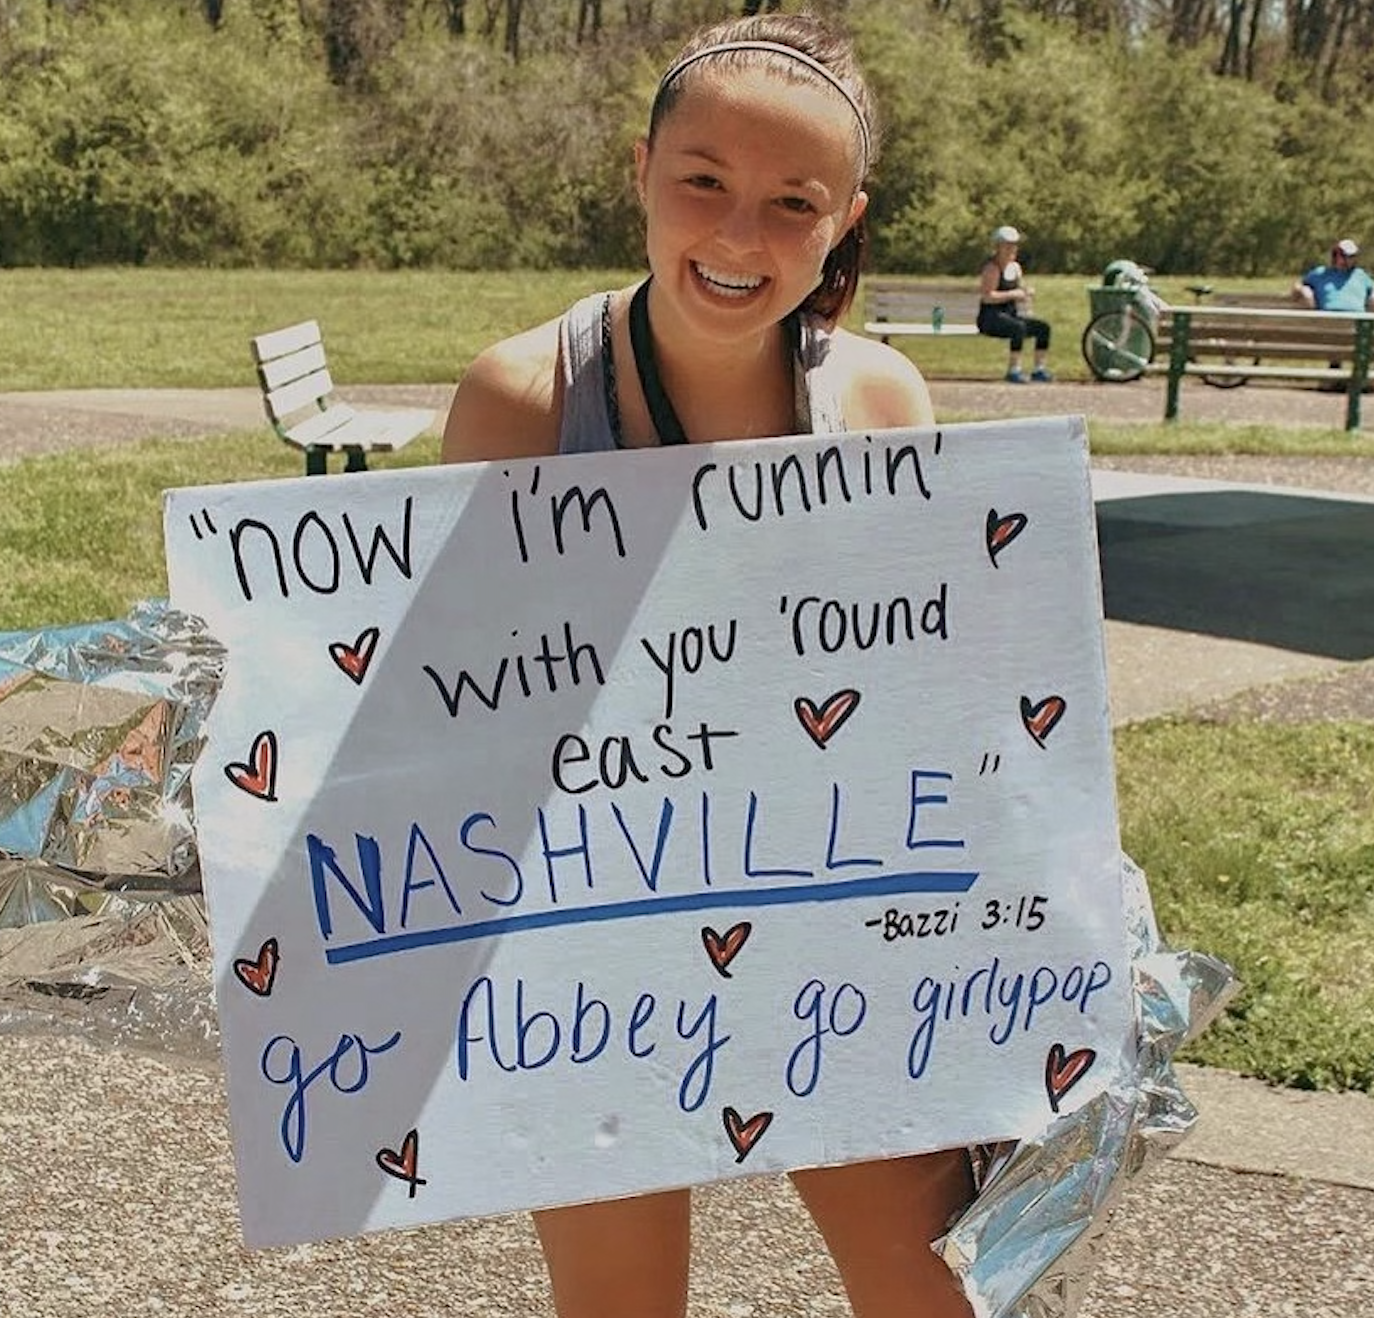 "now i'm runnin'
with you 'round
east
NASHVILLE"
-Bazzi 3:15
go Abbey go girlypop